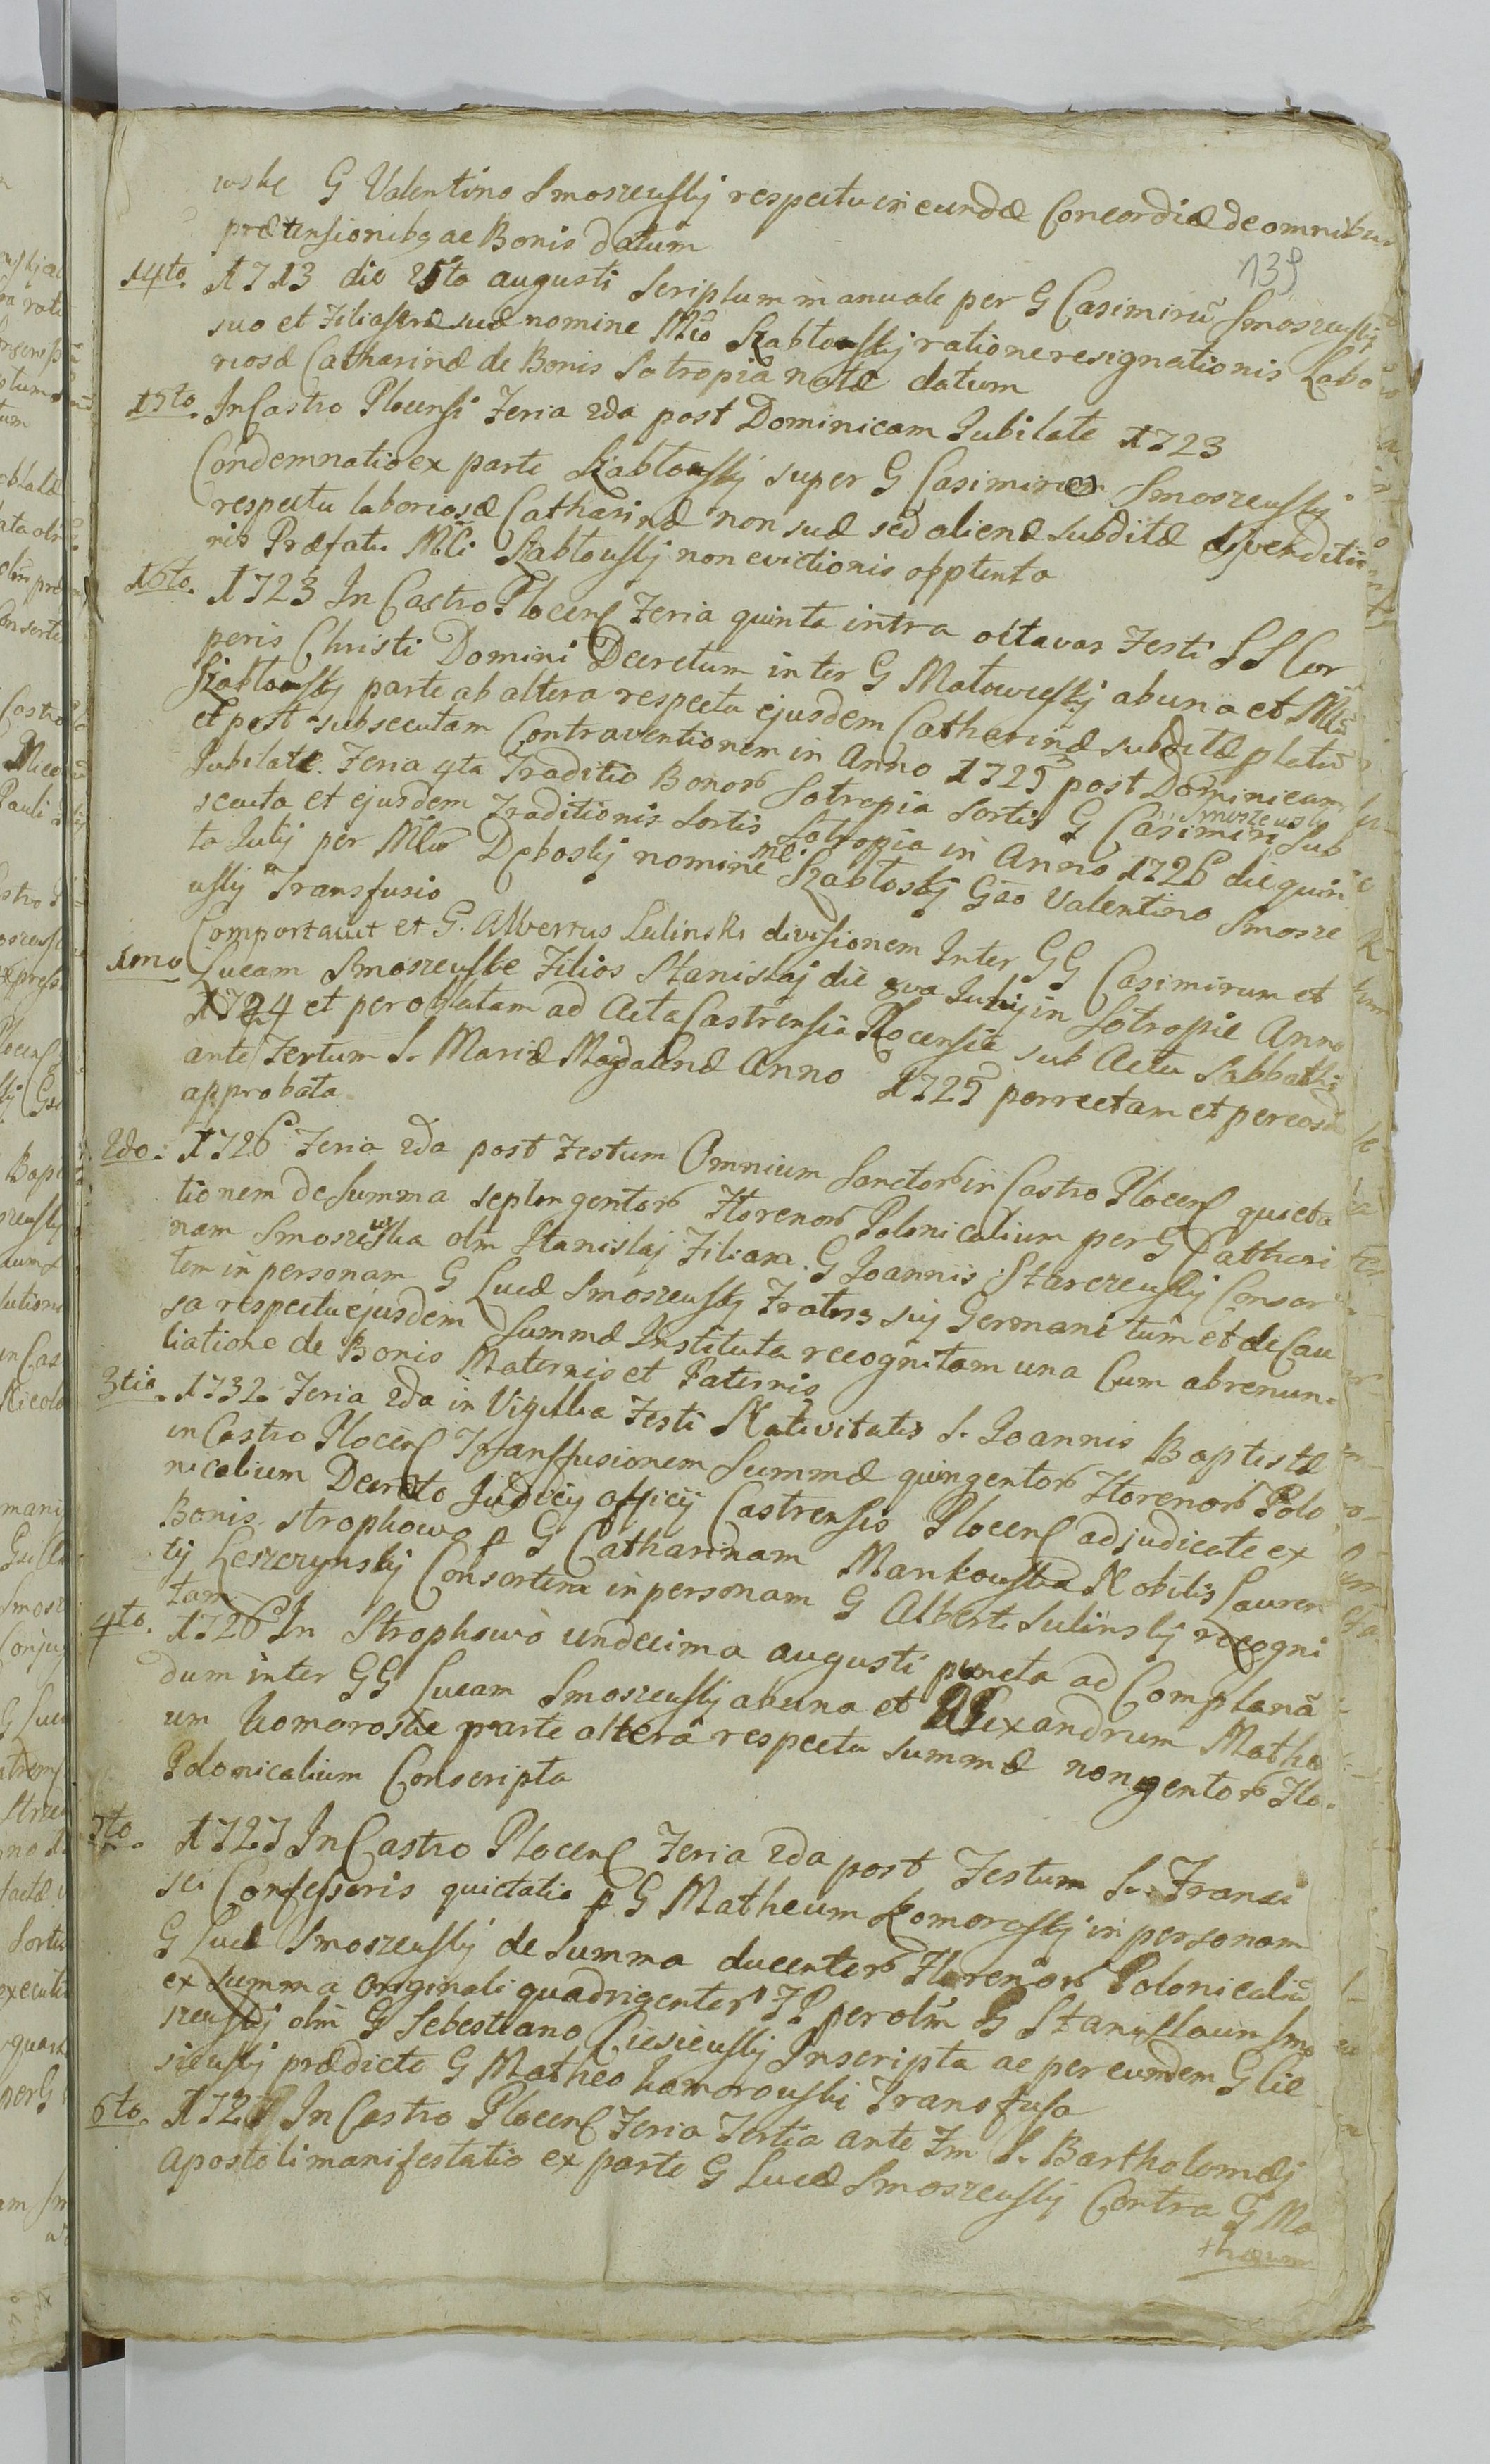 wske G Valentino Smoszeuskj respectu in eundæ Concordiæ de omnibus
prætensionibq ac Bonis datum
139
14to. 1713 die 25ta augusti Scriptum manuale per G Casimirũ Smoszeuskj
suo et Filiastræ suæ nomine Mco Szabłouskj ratione resignationis Labo
riosæ Catharinæ de Bonis Sotropia natæ datum
15to. In Castro Plocensi Feria 2da post Dominicam Jubilate 1723
Condemnatio ex parte Szabłouskj super G Casimiro Smoszeuskj
respectu laboriosæ Catharinæ non suæ sed alienæ subditæ
nis Præfato Mci Szabłouskj non evictionis opptenta
16to. 1723 In Castro Plocens Feria quinta intra octavas Festi SS Cor
poris Christi Domini Decretum inter G Matowieskj ab una et Mcũ
Szabłouskj parte ab altera respectu ejusdem Catharinæ subditæ platũ
et post subsecutam Contraventionem in Anno 1725 post Dominicam
Jubilate. Feria 4ta Traditio Bonor Sotropia Sortis G Casimiri Smoszeuskj Sub
secuta et ejusdem Traditionis Sortis Sotropia in Anno 1726 die quin
ta Julij per Mco Deboskj nomine Mci Szabłoskj Gso Valentino Smosze
uskj Transfusio
Comportauit et G. Albertus Sulinski divisionem Inter GG Casimirum et
1mo Lucam Smoszeuske Filios Stanislaj die 8va Julij in Sotropie Anno
1724 et per oblatam ad Acta Castrensia Plocensia sub Actu Sabbathi
ante Festum S. Mariæ Magdalenæ Anno 1725 porrectam et per eosd
approbata
2do. 1726 Feria 2da post Festum Omnium Sanctor in Castro Plocens quieta
tionem de Summa septengentor Florenor Polonicalium per G Cathari
nam Smoszewska olm Stanislaj Filiam. G Joannis Starczeuskj Consor
tem in personam G Lucæ Smoszeuskj Fratris suj Germani tum et de Cau
sa respectu ejusdem Summæ Instituta recognitam una Cum abrenun=
tiatione de Bonis Maternis et Paternis
3tio. 1732 Feria 2da in Vigillia Festi Nativitatis S. Joannis Baptistæ
in Castro Plocens Transfusionem Summæ quingentor Florenor Polo
nicalium Decreto Judicij officij Castrensis Plocens adjudicate ex
Bonis strophowo p G Catharinam Mankouska Nobilis Lauren
tij Leszczynskj Consortem in personam G Alberti Sulinskj recogni
tam
4to. 1726 In Strophowo undecima augusti puncta ad Complanã
dum inter GG Lucam Smoszeuskj ab una et Alexandrum Mathe
um Komoroskie parte altera respectu summæ nongentor Flo.
Polonicalium Conscripta
5to. 1727 In Castro Plocens Feria 2da post Festum S. Franci
sci Confessoris quietatio p G Matheum Komoroskj in personam
G Lucæ Smoszeuskj de Summa ducentor Florenor Polonicaliũ
ex summa originali quadrigentor FP per olm G Stanislaum Smo
szeuskj olm G Sebestiano Ciesieuskj Inscripta ac per eundem G Cie
sieuskj prædicto G Matheo Komorouski Transfusa
6to. In Castro Plocens Feria Tertia ante Fm S. Bartholomæj
Apostoli manifestatio ex parte G Lucæ Smoszeuskj Contra G Ma
thæum